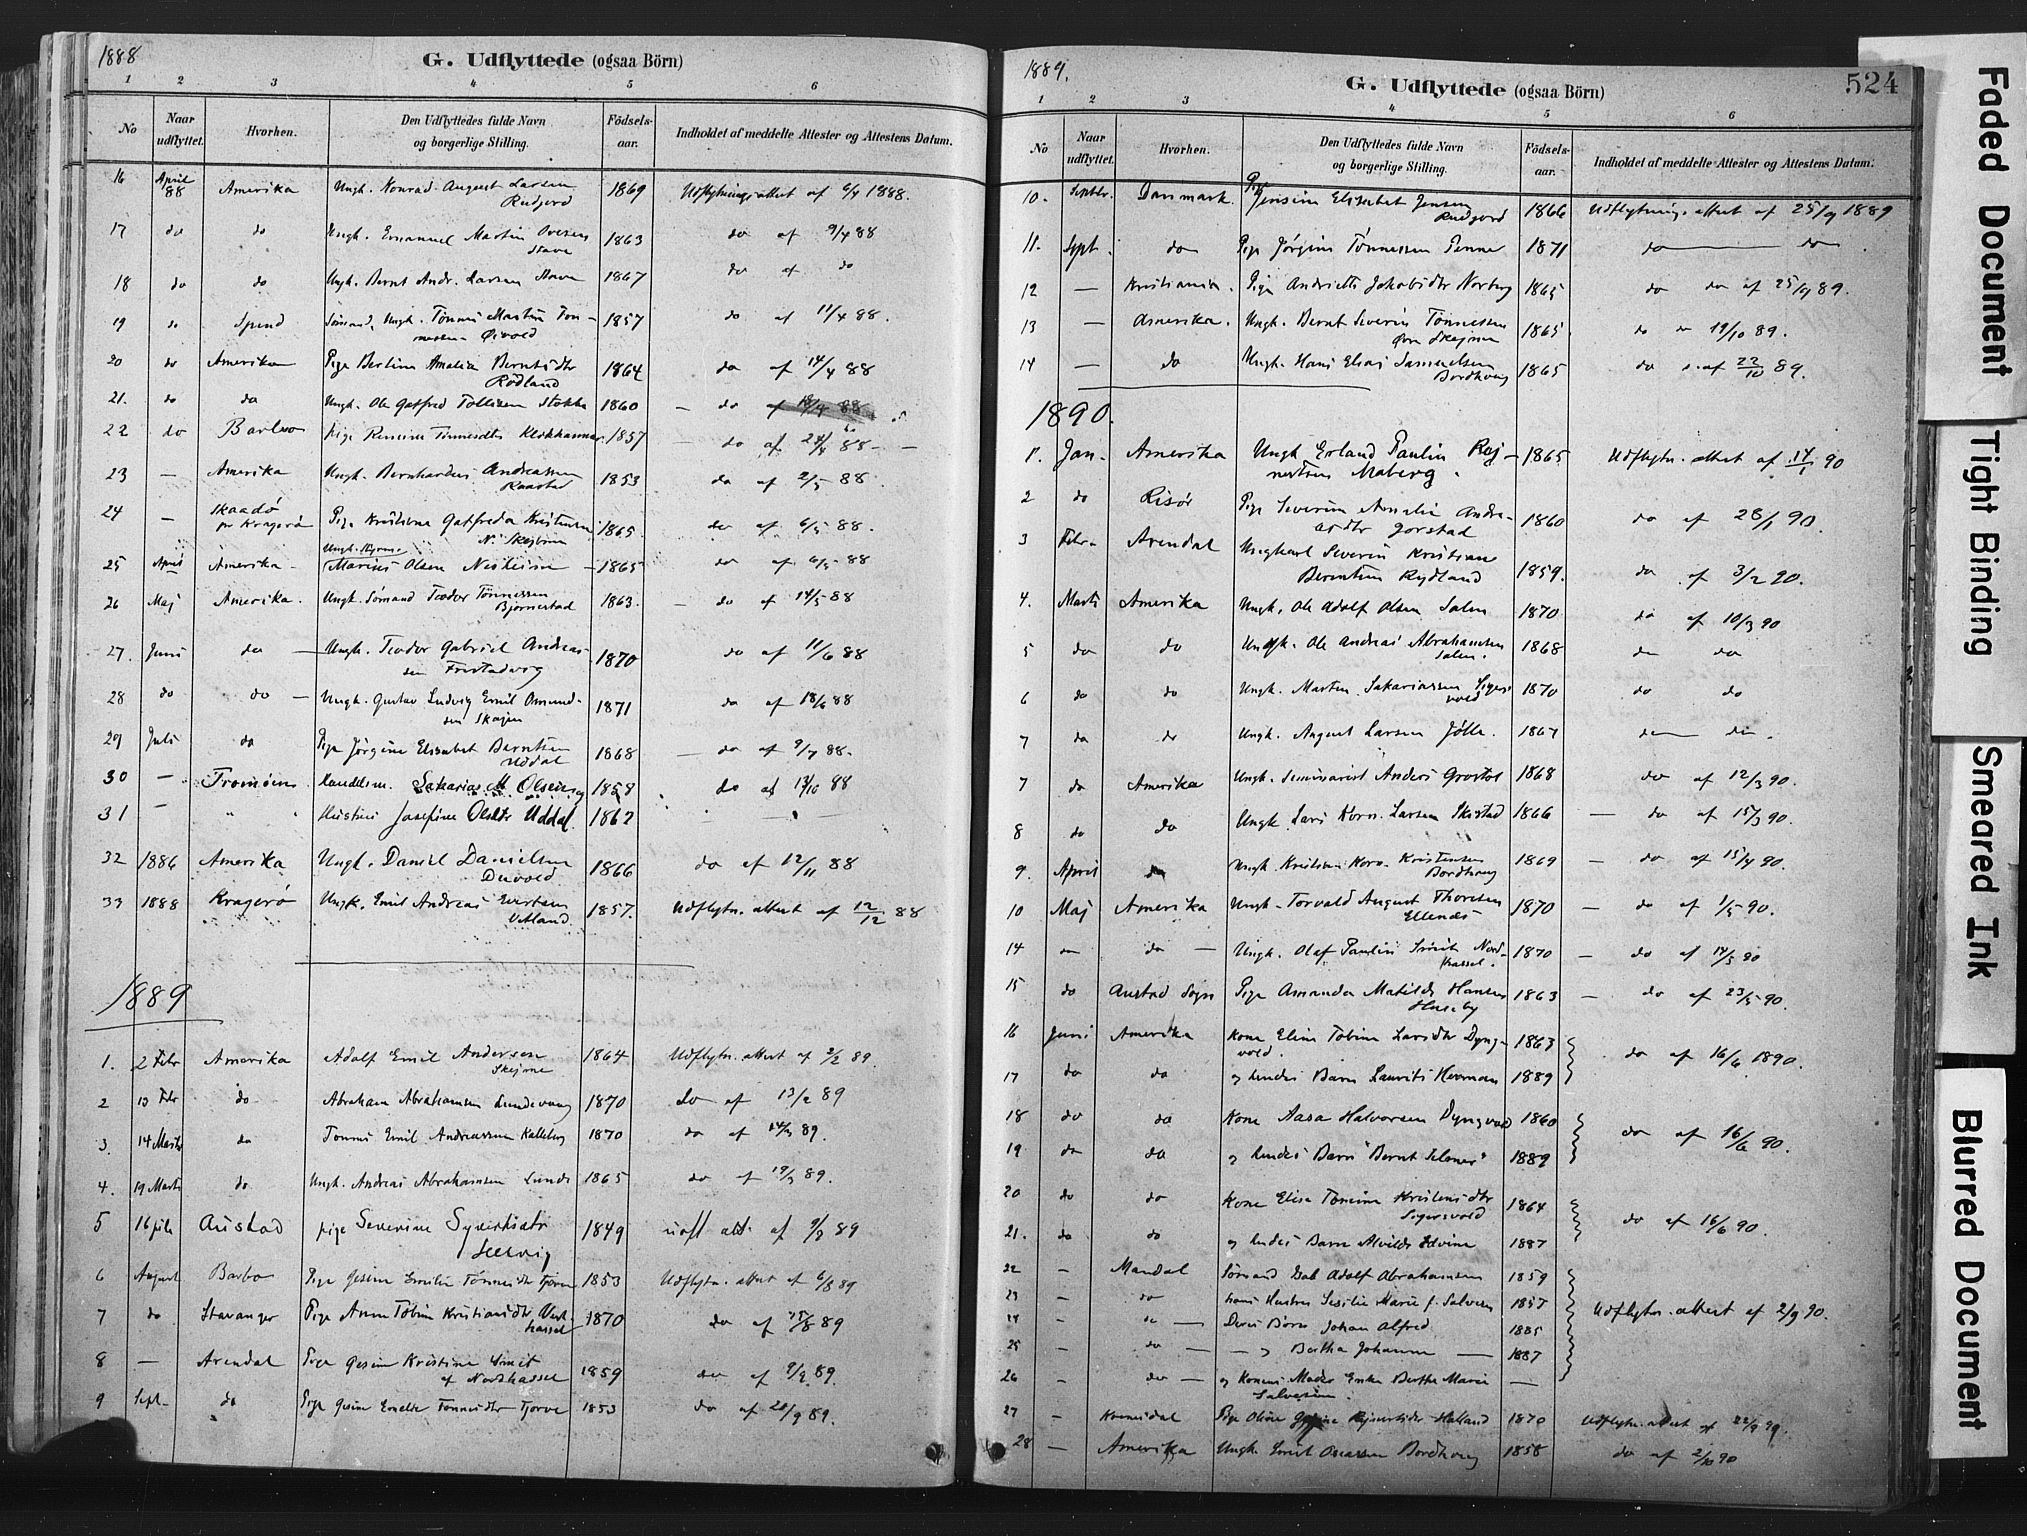 1888
G. Udflyttede (ogsaa Börn)
1 2 3 4 5 6
No
Naar udflyttet.
Hvorhen.
Den Udflyttedes fulde Navn og borgerlige Stilling.
Födsels-aar.
Indholdet af meddelte Attester og Attestens Datum.
16 April 88 Amerika Ungk. Konrad August Larsen 1869 Udflytnings attest af 6/4 1888.
17 do do Ungk. Emanuel Martin Ovesen Stave 1863 do af 9/4 88
18 do do Ungk. Bernt Andr. Larsen Stave 1867 do af do
19 do Sømand, Ungk. Tønnes Martin Tønnessen 1857 do af 11/4 88.
20 do Amerika Pige Berlina Amalia Berntsdtr Rødland 1864 do af 14/4 88
21. do do Ungk. Ole Gotfred Tollisen Stokke 1860 – do af 18/4 88
22 do Barbo pige Tønnesdtr 1857 – do af 24/4 88 –
23 – Amerika Ungk. Bernhardus Andreassen 1853 do af 2/5 88
24 – Skaadø pr Kragerø Pige Kristine Gotfreda Kristensen 1865 do af 6/5 88.
25 April Amerika – Marius Olsen – 1865 do af 6/5 88
26 Maj Amerika. Ungk. Sømand Teodor Tønnessen Bjørnestad 1863. – do af 14/5 88
27. Juni do – Ungk. Teodor Gabriel Andreassen 1870 do af 11/6 88
28 do do – Ungk. Gustav Ludvig Emil Osmundsen Skajen 1871 do af 18/6 88
29 Juli do Pige Jørgine Elisabet Berntsen Uddal 1868 – do af 9/7 88.
30 – Tromøen Sakarias M. Olsen 1858 do af 13/10 88
31 – " " Hustru Josefine Olsdtr Uddal 1862 –
32 1886 Amerika Ungk. Daniel Danielsen 1866 do af 12/11 88
33 1888 Kragerø Ungk. Emil Andreas Evertsen Vatland 1857. Udflytn. attest af 12/12 88
1889
1. 2 Febr Amerika Adolf Emil Andersen 1864 Udflytn. attest af 2/2 89.
2 13 Febr do Abraham Abrahamsen Lundevaag 1870 do af 13/2 89
3. 14 Marts do Tønnes Emil Andreassen Kalleberg 1870 do af 14/3 89.
4. 19 Marts do Ungk. Andreas Abrahamsen Lunde 1865 do af 19/3 89.
5 Austad pige Severine 1849 89
6 August Barbo Pige Gesine Emilie Tønnesdtr Tjørve 1853 Udflytn. attest af 6/8 89
7 do Stavanger Pige Anne Tobine Kristiansdtr Vesthassel 1870 do af 15/8 89
8 – Arendal Pige Gesine Kristine Smit af Nordhassel 1859 do af 9/9 89.
9 Sept– do Pige Gesine Emelie Tønnesdtr Tjørve 1853 do af 21/9 89.
1889.
G. Udflyttede (ogsaa Börn)
524
1 2 3 4 5 6
No
Naar udflyttet.
Hvorhen.
Den Udflyttedes fulde Navn og borgerlige Stilling.
Födsels-aar.
Indholdet af meddelte Attester og Attestens Datum.
10. Septbr. Danmark. Pige Jensine Elisabet Jensen 1866 Udflytnings attest af 25/9 1889
11. Sept. do Pige Jørgine Tønnessen Penne 1871 do do
12 – Kristiania. Pige Andriette Jakobsdtr Norberg 1865 do do af 25/9 89.
13 – Amerika. Ungk. Bernt Severin Tønnessen 1865. do 19/10 89.
14 – do Ungk. Hans Elias Samuelsen Bordhoug 1865 do af 22/10 89.
1890.
1. Jan– Amerika Ungk Erland Paulin Rejnertsen Maberg. 1865 Udflytn. attest af 14/1 90
2 do Risør Pige Severine Amalie Andreasdtr Jorstad 1860 do af 28/1 90.
3 Febr– Arendal Ungkarl Severin Kristian Berntsen Rydland 1859. do af 3/2 90.
4. Marts Amerika Ungk. Ole Adolf Olsen 1870 do af 10/3 90
5 do do Ungk. Ole Andreas Abrahamsen 1868 do do
6 do do Ungk. Marten Sakariassen Sigersvold 1870 do do
7 do do Ungk. August Larsen Jølle. 1867 do do.
7 do Amerika Ungk. Seminarist Anders 1868 do af 12/3 90.
8 do do Ungk. Lars Korn. Larsen 1866 – do af 15/3 90.
9. April do Ungk Kristian Korn. Kristensen Bordhoug 1869 – do af 15/4 90.
10 Maj Amerika Ungk– Torvald August Thoresen Ellenæs 1870 – do af 1/5 90.
14 do do – Ungk. Olaf Paulin Smit Nordhassel. 1870 – do af 90
15 do Austad Sogn Pige Amanda Matilde Hansen Huseby 1863 – do af 23/5 90.
16 Juni Amerika Kone Eline Tobine Larsdtr Dyngvold. 1863
17 do do og hendes Barn Laurits Herman 1889 do af 16/6 1890.
18 do do Kone Aasa Halvorsen Dyngvold 1860
19 do do og hendes Barn "Bernt Selmer" 1889 do af 16/6 90.
20 do do Kone Elise Tomine Kristensdtr Sigersvold 1864
21. do do og hendes Barn Alvilde Edvine 1887 do af 16/6 90.
22 – Mandal Sømand Adolf Abrahamsen 1859
23 – do hans Hustru Sesilie Marie f. Salvesen 1857 Udflytn. attest af 2/9 90.
24 – do – Deres Børn Johan Alfred 1885
25 – do – – " Bertha Johanne – 1887
26 – do – og Konens Moder Enke Berthe Marie Salvesen. –
27 – Pige Oline Rejnertsdtr Holland 1870 Udflytn. attest af 22/9 90.
28 – Amerika Ungk Emil Bordhoug 1858 do af 2/10 90
Faded Document
Tight Binding
Smeared Ink
Blurred Document